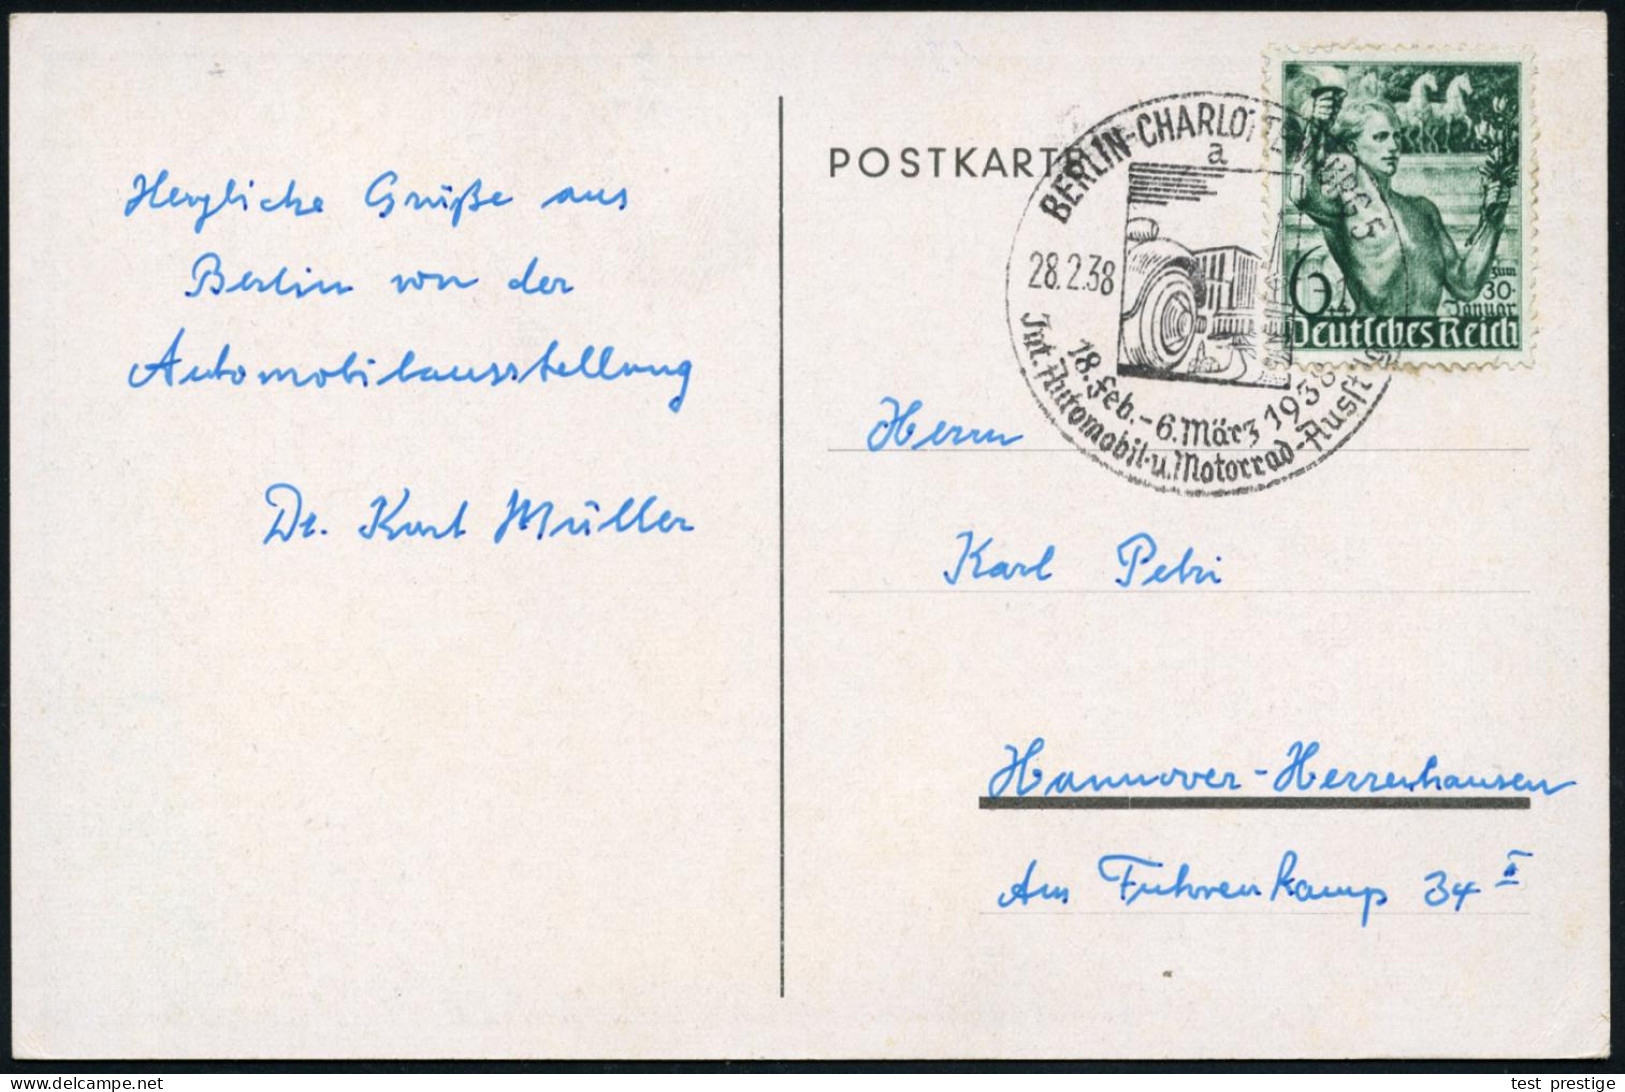 Herzliche Grüße aus
Berlin von der
Automobilausstellung
Dr. Kurt Müller
POSTKARTE
BERLIN-CHARLOTTENBURG 5
a
28.2.38
18. Feb. - 6. März 1938
Int. Automobil- u. Motorrad-Ausst
6
zum
30.
Januar
Deutsches Reich
Herrn
Karl Petri
Hannover-Herrenhausen
Am Fuhrenkamp 34 I
www.delcampe.net
test_prestige